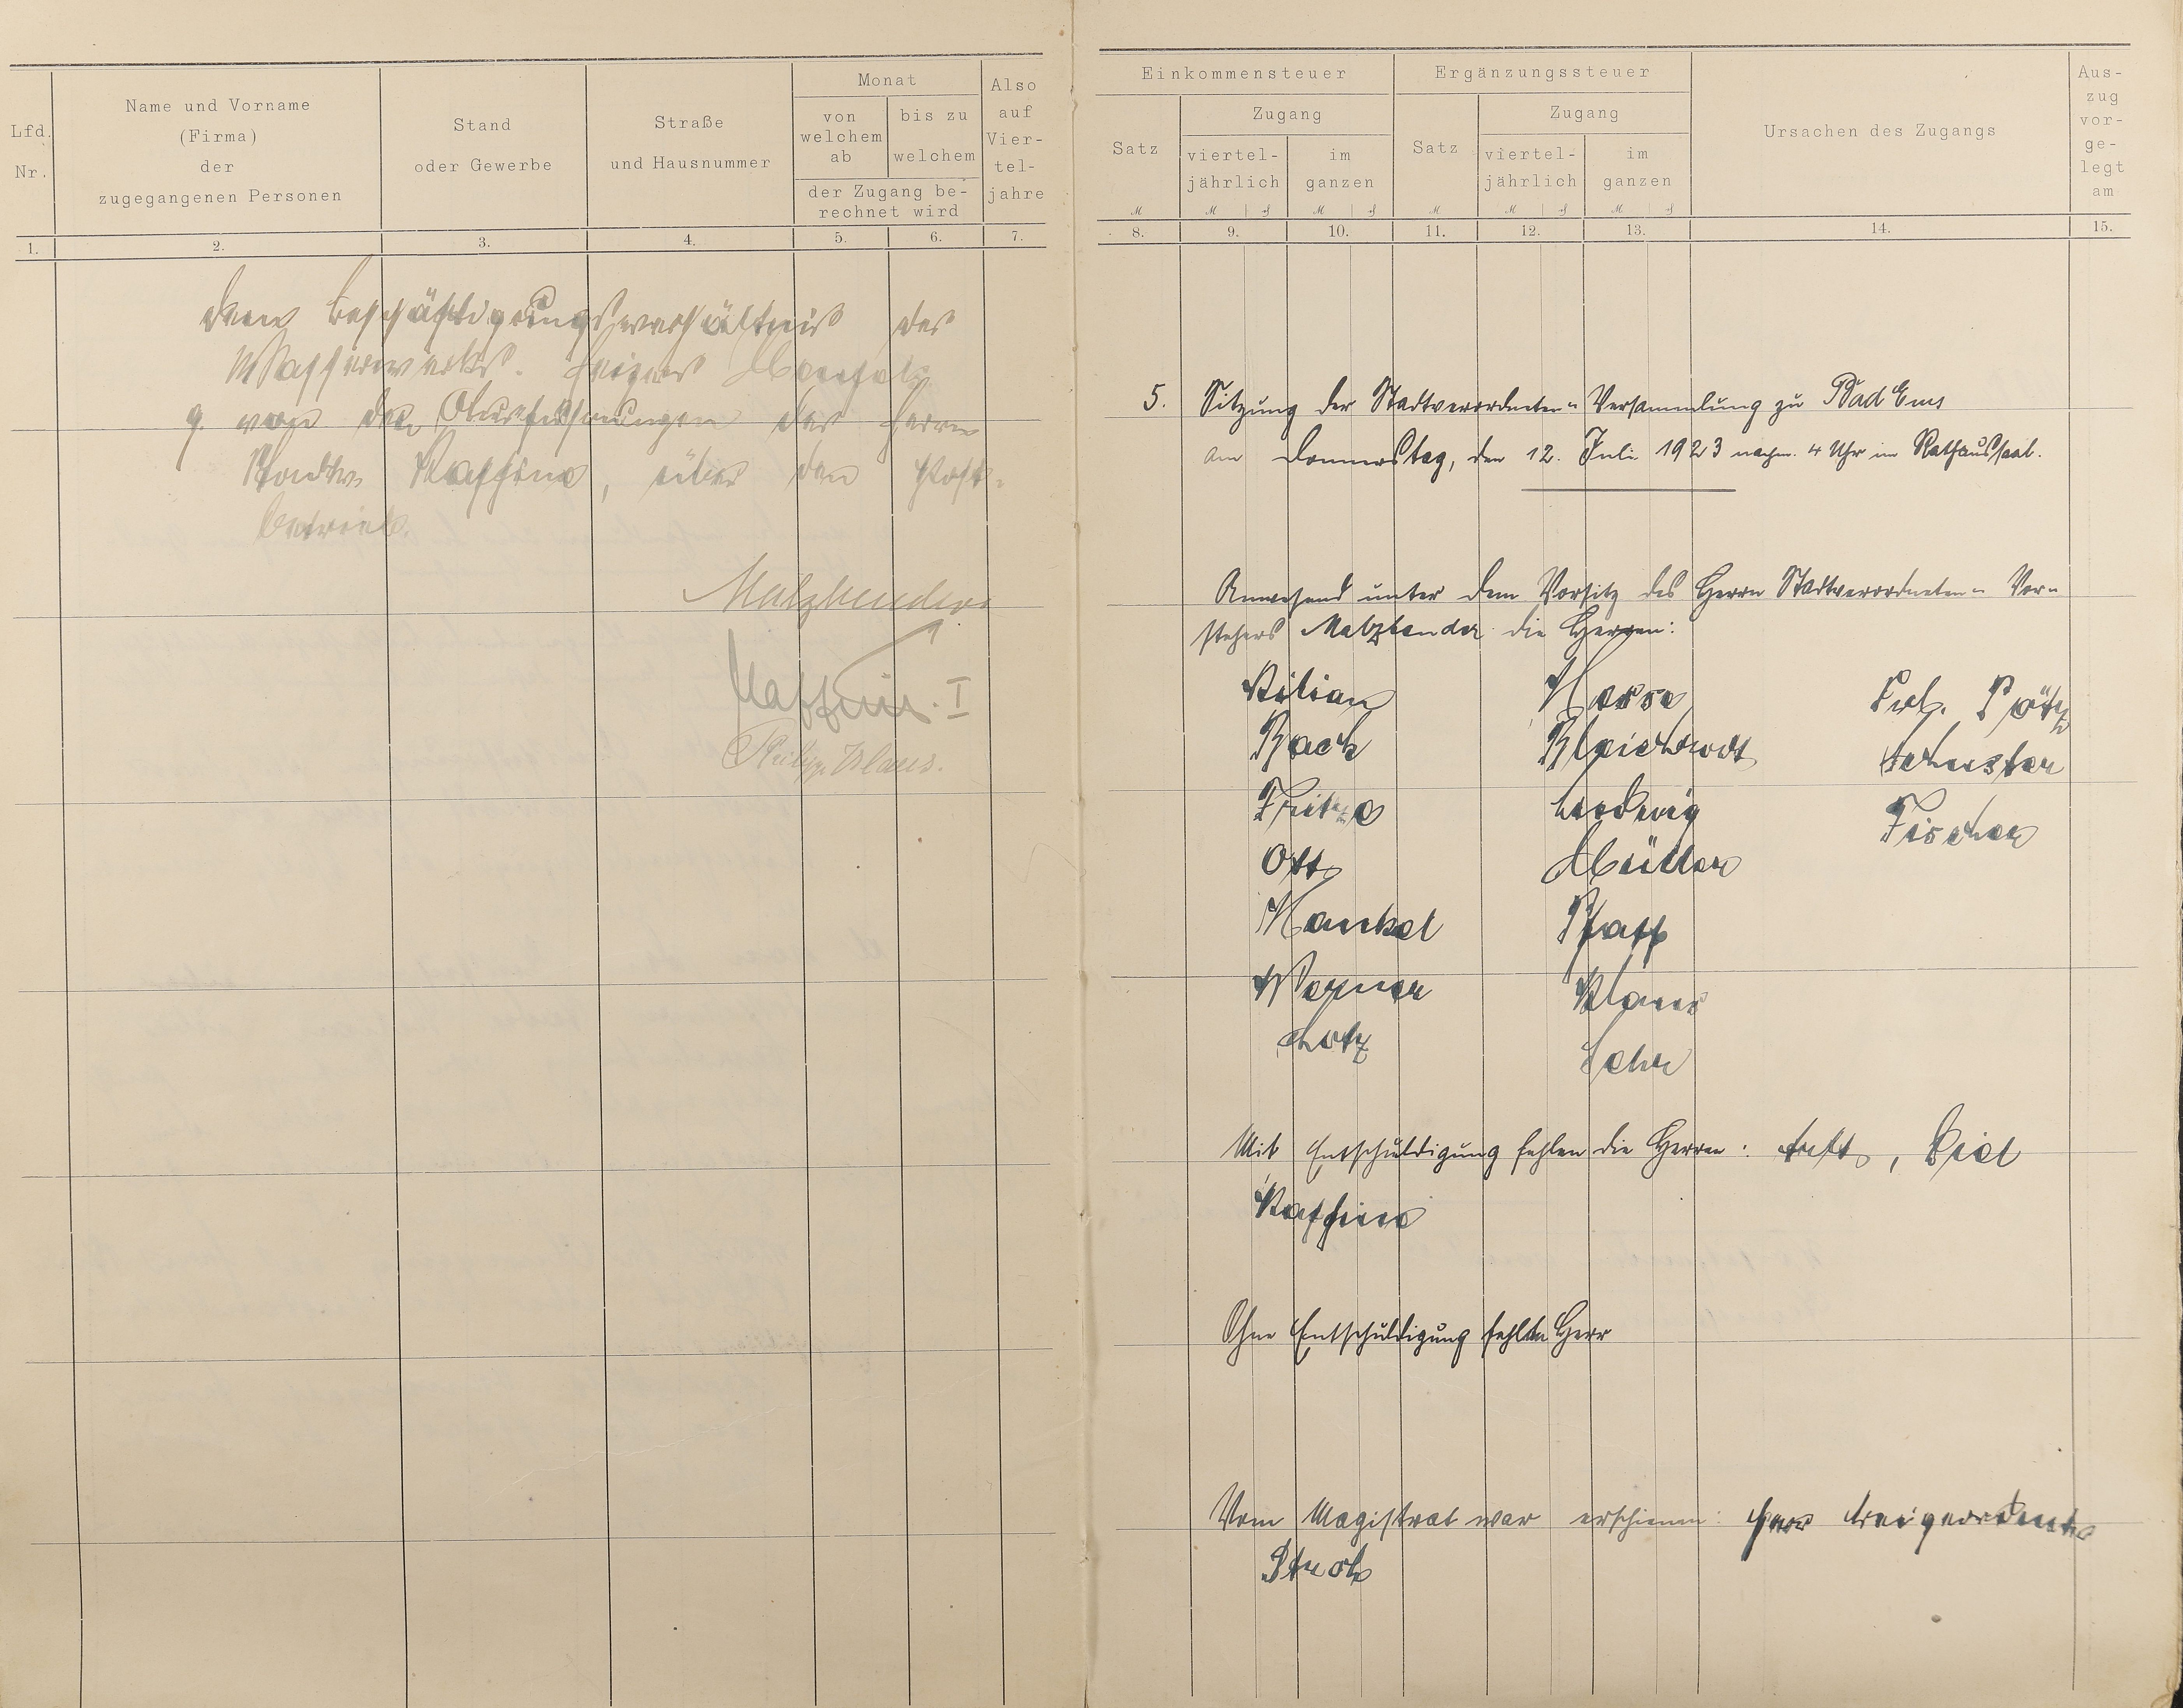 Lfd. Nr.
Name und Vorname
(Firma)
der
zugegangenen Personen
Stand
oder Gewerbe
Straße
und Hausnummer
Monat
von
welchem
ab
bis zu
welchem
der Zugang be-
rechnet wird
Also
auf
Vier-
tel-
jahre
1. 2. 3. 4. 5. 6. 7.
dem Beschäftigungsverhältnis des
Wasserwerks.
9. von den Ausführungen des Herrn
Stadtv. Kaffine, über den Post-
betrieb.
Malzbender
Kaffine. I
Philipp Klaus.
Einkommensteuer
Satz
Zugang
viertel-
jährlich
im
ganzen
Ergänzungssteuer
Satz
Zugang
viertel-
jährlich
im
ganzen
Ursachen des Zugangs
Aus-
zug
vor-
ge-
legt
am
M M ₰ M ₰ M M ₰ M ₰
8. 9. 10. 11. 12. 13. 14. 15.
5. Sitzung der Stadtverordneten-Versammlung zu Bad Ems
am Donnerstag, den 12. Juli 1923 nachm. 4 Uhr im Rathaussaal.
Anwesend unter dem Vorsitz des Herrn Stadtverordneten-Vor-
stehers Malzbender die Herren:
Kilian
Back
Fritze
Ott
Kunkel
Werner
Lotz
Bleichrodt
Ludwig
Müller
Pfaff
Klaus
Lehr
Schuster
Fischer
Mit Entschuldigung fehlen die Herren: Biel
Kaffine
Ohne Entschuldigung fehlten Herr
Vom Magistrat war erschienen: Herr Beigeordneter
Strob